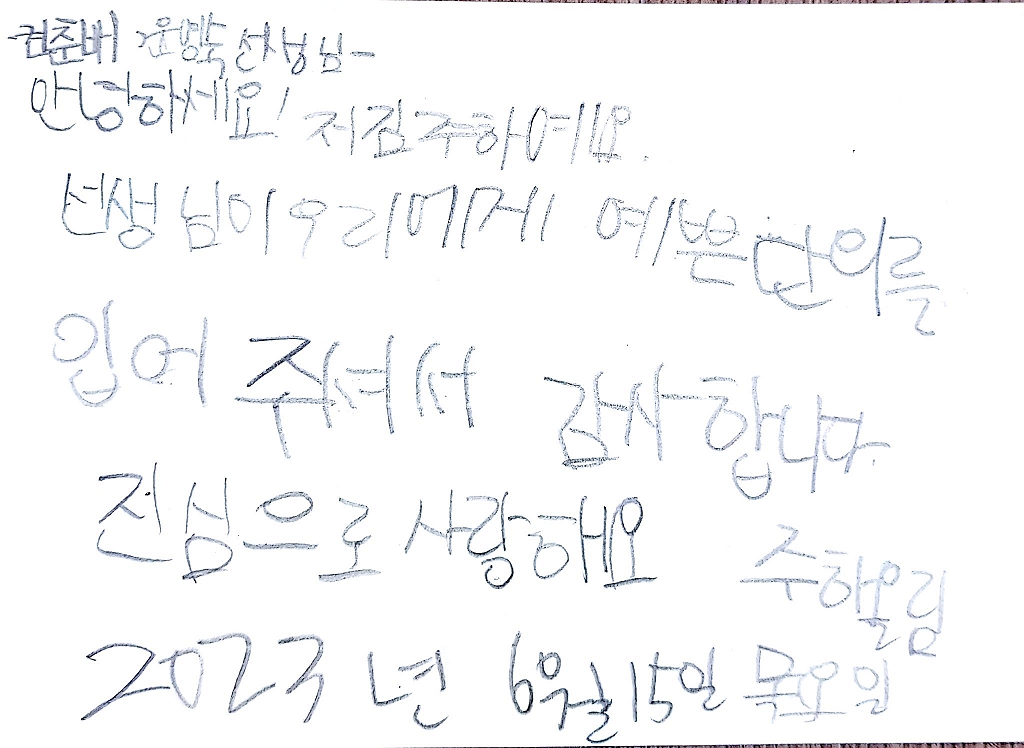 권춘배 강운영숙 선생님
안녕하세요! 저김주하예요.
선생님이우리에게 예쁜단의를
입어 주셔서 감사합니다
진심으로 사랑해요 주하올림
2023년 6월15일 목요일